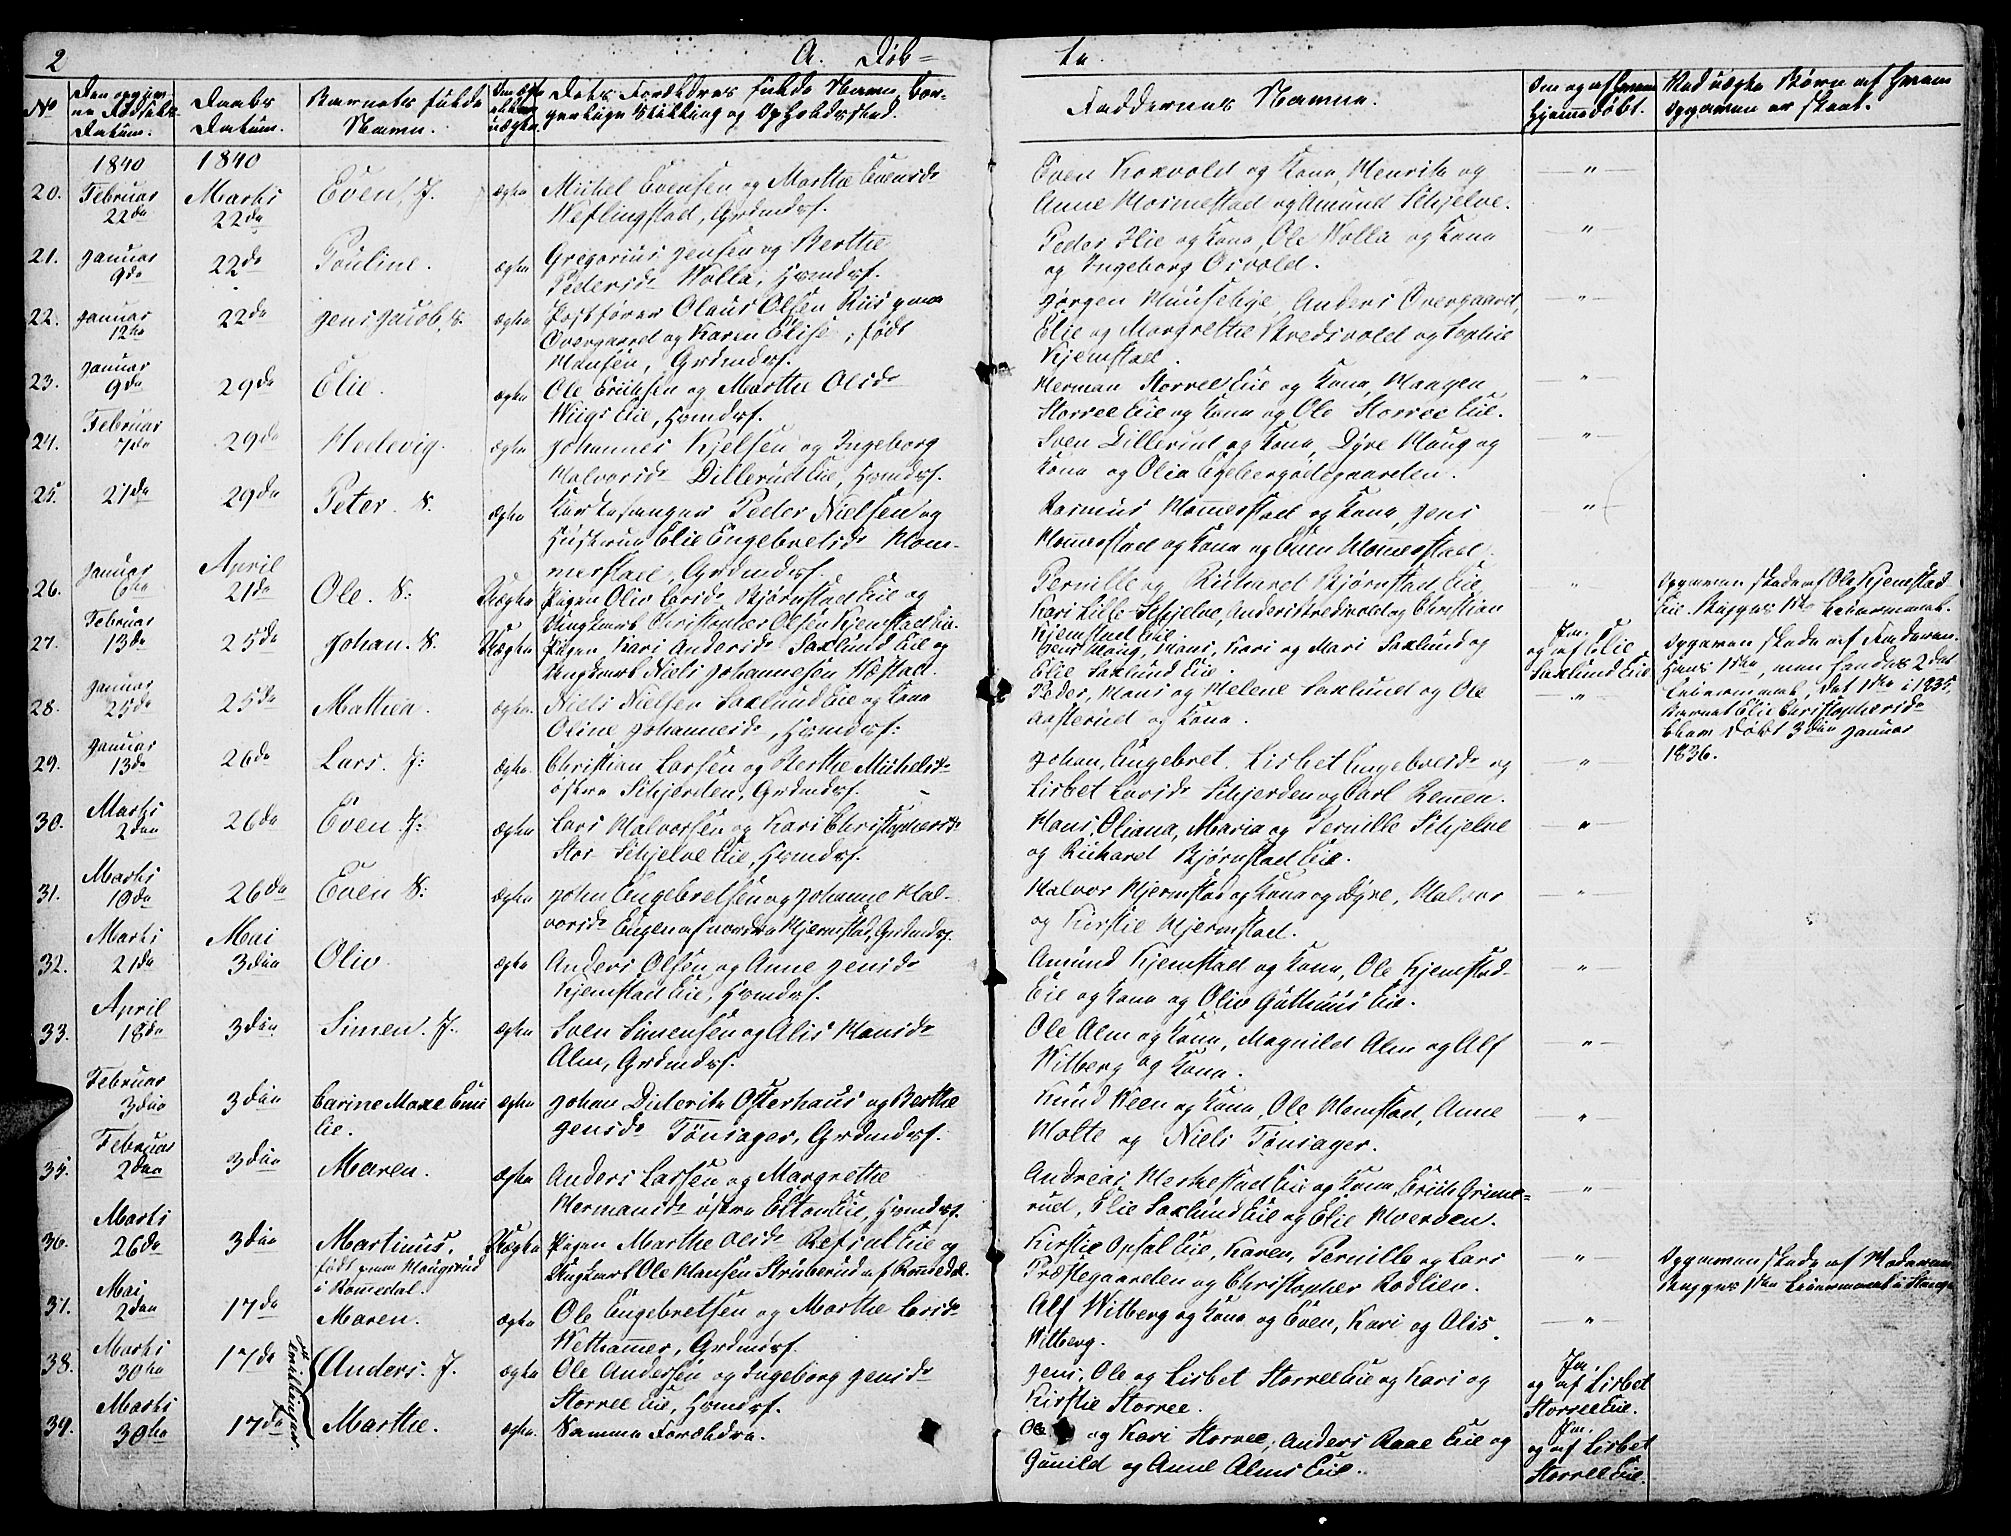 2 A. Døb= te.
No Den opgivne Fødsels Datum. Daabs Datum. Barnets fulde Navn. Om ægte eller uægte. Dets Forældres fulde Navne, borgerlige Stilling og Opholdssted. Faddernes Navne. Om og af hvem hjemmedøbt. Ved uægte Børn af hvem Opgaven er skeet.
1840 1840
20. Februar 22de Marts 22de Even, J. ægte Michel Evensen og Marthe Evensd.
Grdmdsf.
Even og Kone, Henrik og
Anne og Amund Schjelve.
21. Januar 9de 22de Pouline. ægte Gregorius Jensen og Berthe
Pedersd. Wolla, Hsmdsf.
Peder Ilie og Kone, Ole Wolla og Kone
og Ingeborg Osvold.
22. Januar 12te 22de Jens Jacob, ægte Olaus Olsen Riis
Overgaard og Karen Elise, født
Hansen, Grdmdsf.
Jørgen Anders Overgaard,
Elie og Margrethe Bredsvold og Sophie
Kjemstad.
23. Januar 9de 29de Elie. ægte Ole Eriksen og Marthe Olsd.
Wiigs Eie, Hsmdsf.
Herman Storree Eie og Kone, Haagen
Storree Eie og Kone og Ole Storree Eie.
24. Februar 7de 29de Hedevig. ægte Johannes Kjelsen og Ingeborg
Halvorsd. Dillerud Eie, Hsmdsf.
Sven Dillerud og Kone, Dyre Haug og
Kone og Olia Egebergødegaarden.
25. 21de 29de Peter. ægte Peder Nielsen og
Hustrue Elie Engebretsd. Hom-
merstad, Grdmdsf.
Rasmus Hommerstad og Kone, Jens
Hommerstad og Kone og Even Hommerstad.
26. Januar 6te April 21de Ole. Uægte Pigen Oliv Larsd. Bjørnstad Eie og
Ungkarl Christopher Olsen Kjemstad Eie.
Pernille og Richard Bjørnstad Eie
Kari Lille-Schjelve, Anders Bredvold og Christian
Kjemstad Eie.
Opgaven skede af Ole Kjemstad
Eie. Begges 1ste Leiermaal.
27. Februar 13de 25de Johan. Uægte Pigen Kari Andersd. Saxlund Eie og
Ungkarl Niels Johannesen
Haug, Hans, Kari og Mari Saxlund og
Elie Saxlund Eie.
Ja, og af Elie Saxlund Eie
Opgaven skede af Faderen.
Hans 1ste, men hendes 2det
Leiermaal, det 1ste i 1835,
Barnet Elie Christophersd.
blev døbt 3die Januar
1836.
28. Januar 25de 25de Mathea. ægte Niels Nielsen Saxlund Eie og Kone
Oline Johannesd., Hsmdsf.
Peder, Hans og Helene Saxlund og Ole
Aasterud og Kone.
29. Januar 13de 26de Lars. J. ægte Christian Larsen og Berthe Michelsd.
østre Schjerden, Grdmdsf.
Johan, Engebret, Lisbet Engebretsd. og
Lisbet Larsd. Schjerden og Carl Remen.
30. Marts 2den 26de Even J. ægte Lars Halvorsen og Kari Christophersd.
Stor-Schjelve Eie, Hsmdsf.
Hans, Oliana, Maria og Pernille Schjelve
og Richard Bjørnstad Eie.
31. Marts 19de 26de Even ægte John Engebretsen og Johanne Hal-
vorsd. Engen af nordre Hjermstad, Grdmdsf.
Halvor Hjermstad og Kone og Dyre, Halvor
og Kirstie Hjermstad.
32. Marts 21de Mai 3die Oliv ægte Anders Olsen og Anne Jensd.
Kjemstad Eie, Hsmdsf.
Amund Kjemstad og Kone, Ole Kjemstad-
Eie og Kone og Oliv Guthuus Eie.
33. April 18de 3die Simen. J. ægte Sven Simensen og Alis Hansd.
Alm, Grdmdsf.
Ole Alm og Kone, Magnild Alm og Alf
Witberg og Kone.
Februar 3die 3die Carine Maxe Emi
lie. ægte Johan Diderik Osterhaus og Berthe
Jensd. Tønsager, Grdmdsf.
Knud Ween og Kone, Ole Homstad, Anne
Holte og Niels Tønsager.
35. Februar 2den 3die Maren. ægte Anders Larsen og Margrethe
Hermansd. østre Elton Eie, Hsmdsf.
Andreas Herkestad Eie og Kone, Erik Grime-
rud, Elie Saxlund Eie og Elie Hverven.
36. Marts 26de 3die Martinus, født paa Haugsrud i Rommedal. Uægte Pigen Marthe Olsd. Refsal Eie og
Ungkarl Ole Hansen Struberud af Romedal.
Kirstie Opsal Eie, Karen, Pernille og Lars
Præstegaarden og Christopher Rodlien.
Opgaven skede af Moderen
Begges 1ste Leiermaal i Stange
37. Mai 2den 17de Maren. ægte Ole Engebretsen og Marthe Larsd.
Wethammer, Grdmdsf.
Alf Witberg og Kone og Even, Kari og Alis
Witberg.
38. Marts 30te 17de Anders. J. ægte Ole Andersen og Ingeborg Jensd.
Storree Eie, Hsmdsf.
Jens, Ole og Lisbet Storree Eie og Kari og
Kirstie Storree.
Ja, og af Lisbet Storree Eie.
Tvillinger.
39. Marts 30te 17de Marthe. ægte. Samme Forældre.
Ole og Kari Storree, Anders Raae Eie og
Gunild og Anne Alms Eie.
Ja, og af Lisbet Storree Eie.